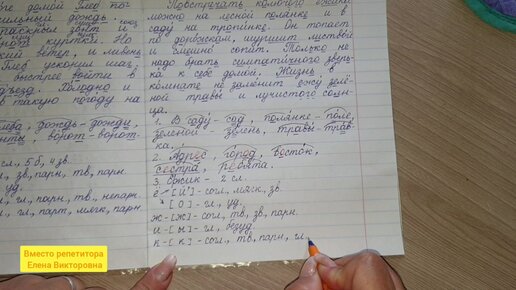 ве домой Глеб пог
сильный дождь.
зонт и
куртки. Но
ский ветер, и ливень
Глеб ускорил шаг,
быстрее войти в
дъезд. Холодно и
в такую погоду на
дождь - дожди,
ворот - ворот-
сл., 5 б., 4 зв.
зв., парн.
уд.
гл., парн., тв., непарн.
гл., парн., мягк., парн
Повстречать колючего ёжика
можно на лесной полянке и в
саду на тропинке. Он топает
по дорожкам, шуршит листвой
и смешно сопит. Только не
надо брать симпатичного зверь-
ка к себе домой. Жизнь в
комнате не заменит ежу зелё-
ной травы и лучистого солн-
ца.
1. В саду - сад, полянке - поле,
зелёной - зелень, травы - трав-
ка.
2. Адрес, город, восток,
сестра, ребята.
3. Ёжик - 2 сл.
ё - [й'] - согл., мягк., зв.
[о] - гл., уд.
ж - [ж] - согл., тв., зв., парн.
и - [ы] - гл., безуд.
к - [к] - согл., тв., парн., гл.,
Вместо репетитора
Елена Викторовна